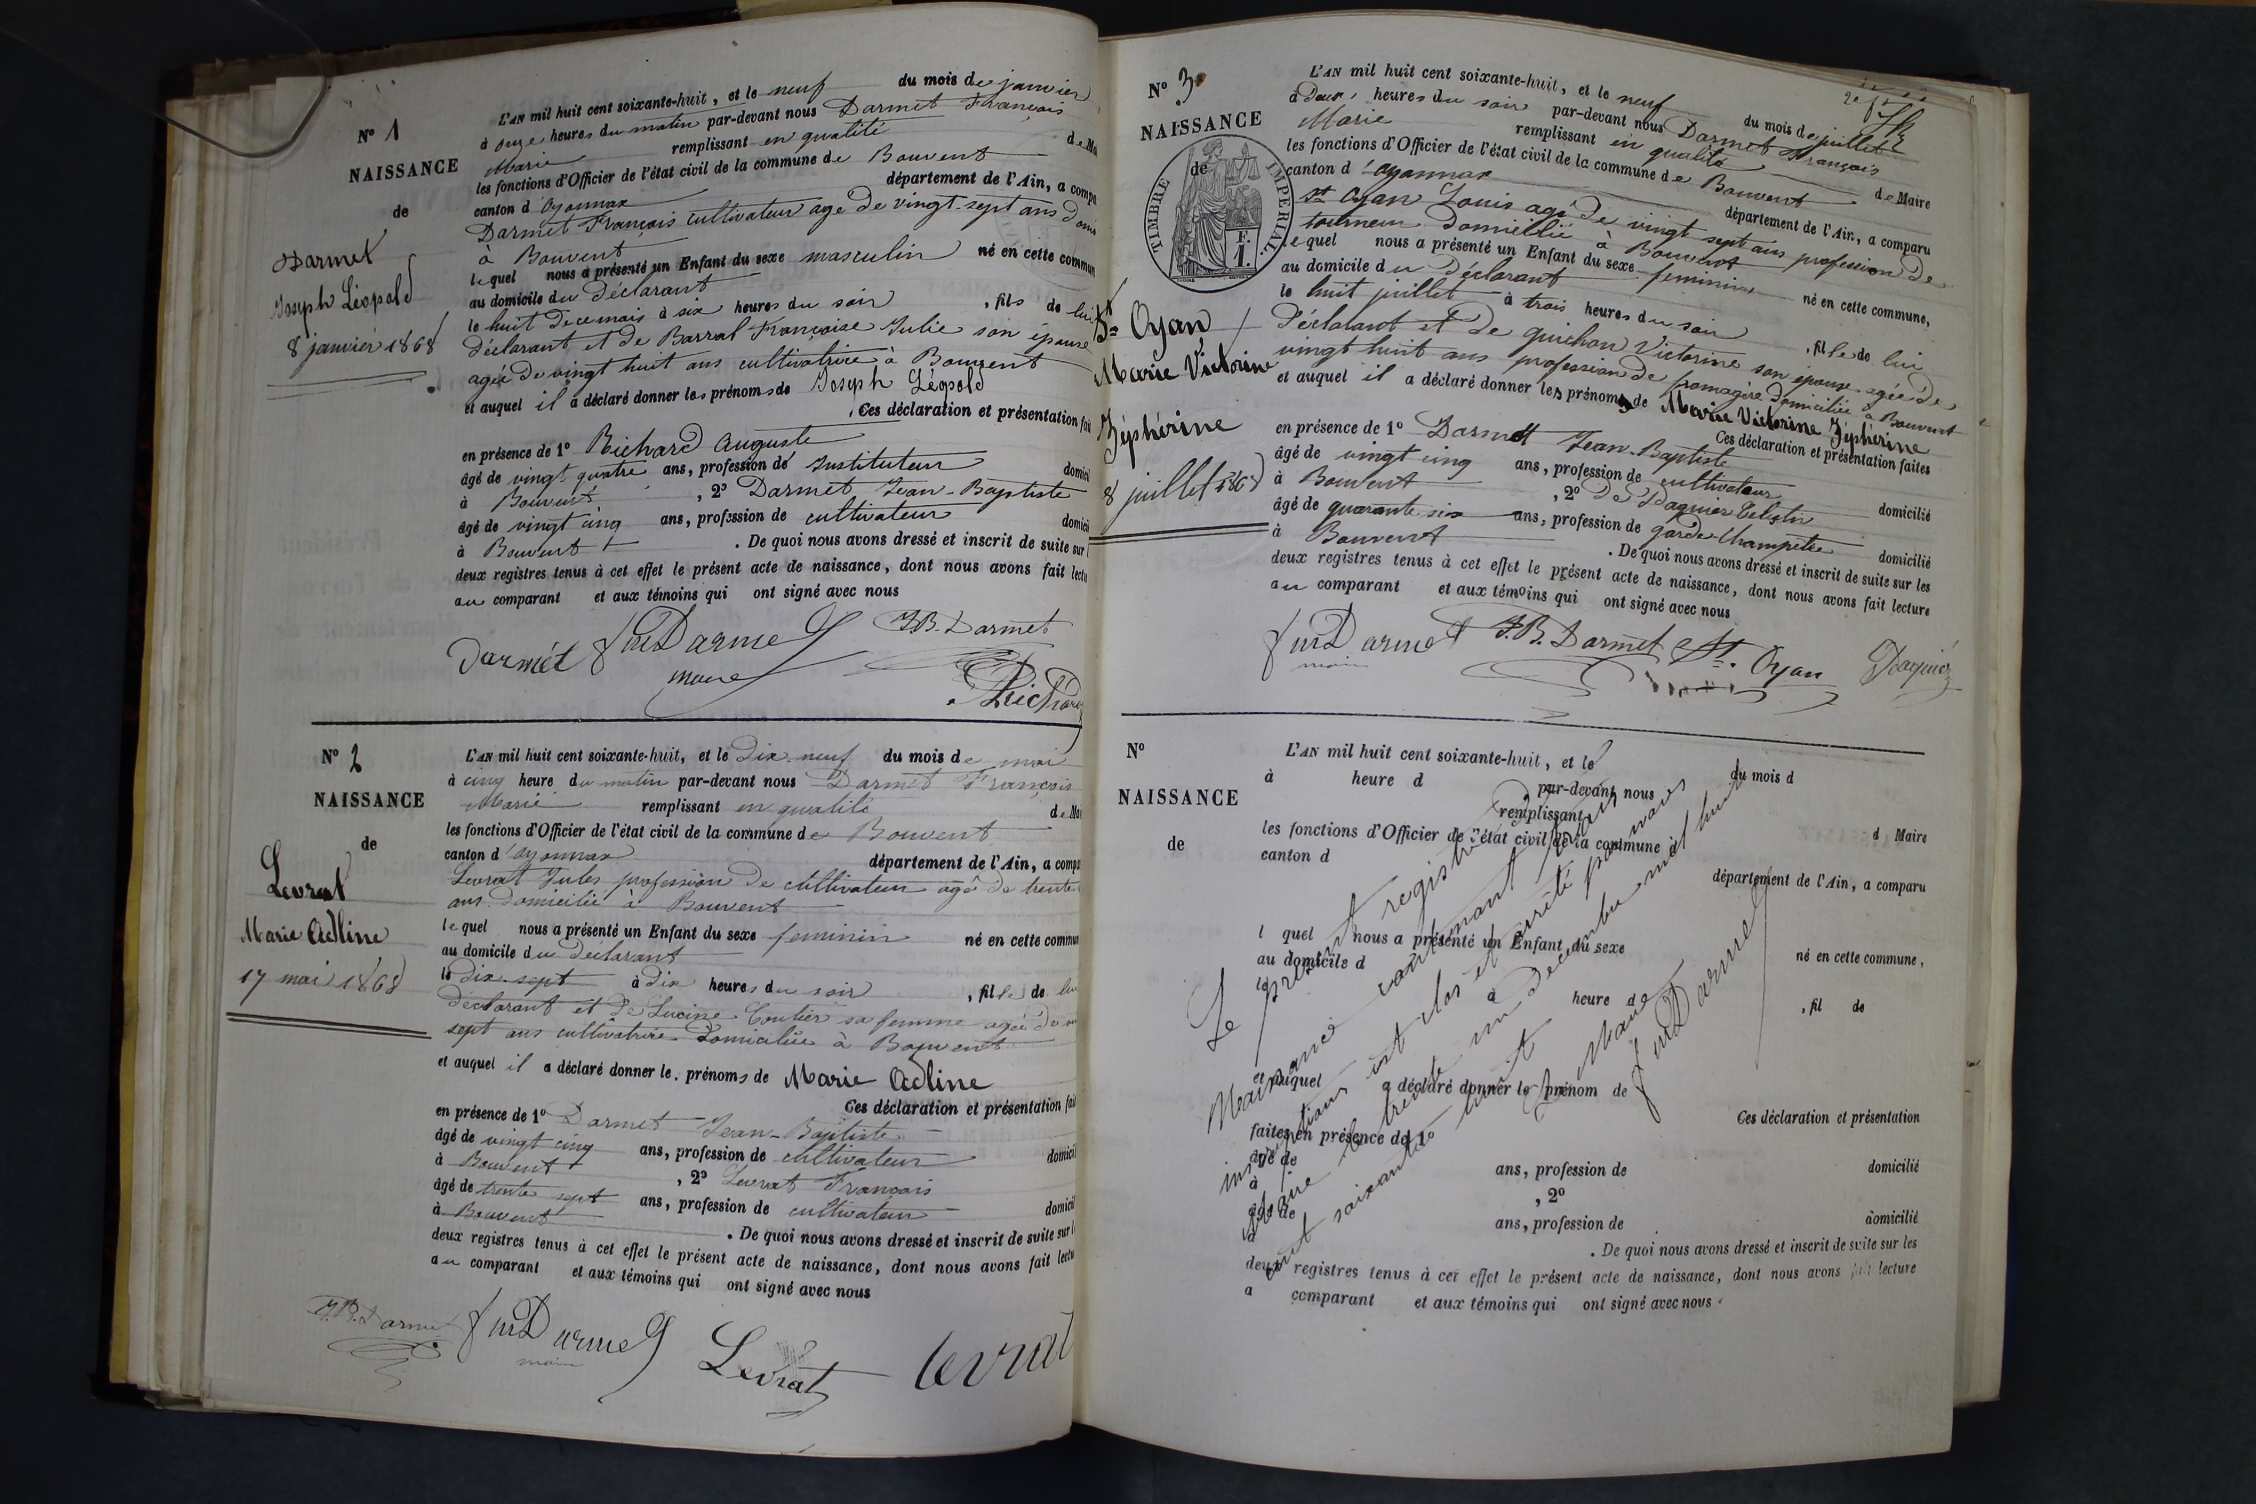 N° 1
NAISSANCE
de
Darmet
Joseph Léopold
8 janvier 1868
L'AN mil huit cent soixante-huit, et le neuf du mois de janvier
à onze heures du matin par-devant nous Darmet François
Marie remplissant en qualité de Ma
les fonctions d'Officier de l'état civil de la commune de Bouvent
canton d'Oyonnax département de l'Ain, a compa
Darmet François cultivateur age de vingt-sept ans domi
à Bouvent
lequel nous a présenté un Enfant du sexe masculin né en cette commun
au domicile du déclarant
le huit de ce mois à six heures du soir, fils de lui
déclarant et de Barral Françoise Julie son épouse
agée de vingt huit ans cultivatrice à Bouvent
et auquel il a déclaré donner les prénoms de Joseph Léopold
. Ces déclaration et présentation fai
en présence de 1° Richard Auguste
âgé de vingt quatre ans, profession de Instituteur domici
à Bouvent, 2° Darmet Jean-Baptiste
âgé de vingt cinq ans, profession de cultivateur domicil
à Bouvent. De quoi nous avons dressé et inscrit de suite sur l
deux registres tenus à cet effet le présent acte de naissance, dont nous avons fait lectu
au comparant et aux témoins qui ont signé avec nous
Darmet J M Darmet J.B. Darmet
maire
Richard
N° 2
NAISSANCE
de
Levrat
Marie Adline
17 mai 1868
L'AN mil huit cent soixante-huit, et le dix-neuf du mois de mai
à cinq heure du matin par-devant nous Darmet François
Marie remplissant en qualité de Mai
les fonctions d'Officier de l'état civil de la commune de Bouvent
canton d'oyonnax département de l'Ain, a compa
Levrat Jules profession de cultivateur agé de trente
ans domicilié à Bouvent
lequel nous a présenté un Enfant du sexe feminin né en cette commun
au domicile du déclarant
le dix-sept à dix heures du soir, fille de lui
déclarant et de Lucine Coutier sa femme agée de
sept ans cultivatrice domiciliée à Bouvent
et auquel il a déclaré donner le. prénoms de Marie Adline
Ces déclaration et présentation fai
en présence de 1° Darmet Jean-Baptiste
âgé de vingt cinq ans, profession de cultivateur domicil
à Bouvent, 2° Levrat François
âgé de trente sept ans, profession de cultivateur domicil
à Bouvent. De quoi nous avons dressé et inscrit de suite sur l
deux registres tenus à cet effet le présent acte de naissance, dont nous avons fait lectu
au comparant et aux témoins qui ont signé avec nous
J.B. Darmet J M Darmet Levrat levrat
maire
N° 3
NAISSANCE
de
TIMBRE IMPERIAL.
F.
1.
St Oyan
Marie Victorine
Zéphérine
8 juillet 1868
2e
L'AN mil huit cent soixante-huit, et le neuf du mois de juillet
à deux heures du soir par-devant nous Darmet François
Marie remplissant en qualité de Maire
les fonctions d'Officier de l'état civil de la commune de Bouvent
canton d'oyonnax département de l'Ain, a comparu
St Oyan Louis agé de vingt sept ans profession de
tourneur domicilié à Bouvent
lequel nous a présenté un Enfant du sexe feminin né en cette commune,
au domicile du déclarant
le huit juillet à trois heures du soir, fille de lui
déclarant et de guichon Victorine son épouse agée de
vingt huit ans profession de fromagère domiciliée à Bouvent
et auquel il a déclaré donner les prénoms de Marie Victorine Zéphérine
Ces déclaration et présentation faites
en présence de 1° Darmet Jean-Baptiste
âgé de vingt cinq ans, profession de cultivateur domicilié
à Bouvent, 2° De Daquier Celestin
âgé de quarante six ans, profession de garde-champêtre domicilié
à Bouvent. De quoi nous avons dressé et inscrit de suite sur les
deux registres tenus à cet effet le présent acte de naissance, dont nous avons fait lecture
au comparant et aux témoins qui ont signé avec nous
J M Darmet J.B. Darmet St. Oyan Daquier
maire
N°
NAISSANCE
de
L'AN mil huit cent soixante-huit, et le du mois d
à heure d par-devant nous
remplissant d Maire
les fonctions d'Officier de l'état civil de la commune d
canton d département de l'Ain, a comparu
l quel nous a présenté un Enfant du sexe né en cette commune,
au domicile d
le à heure d, fil de
et auquel a déclaré donner le prénom de
Ces déclaration et présentation
faites en présence de 1°
âgé de ans, profession de domicilié
à, 2°
âgé de ans, profession de domicilié
à. De quoi nous avons dressé et inscrit de suite sur les
deux registres tenus à cet effet le présent acte de naissance, dont nous avons fait lecture
a comparant et aux témoins qui ont signé avec nous
Le présent registre de
Naissance contenant trois
inscriptions est clos et arrêté par nous
Maire le trente un décembre mil huit
cent soixante huit
Le Maire
J M Darmet